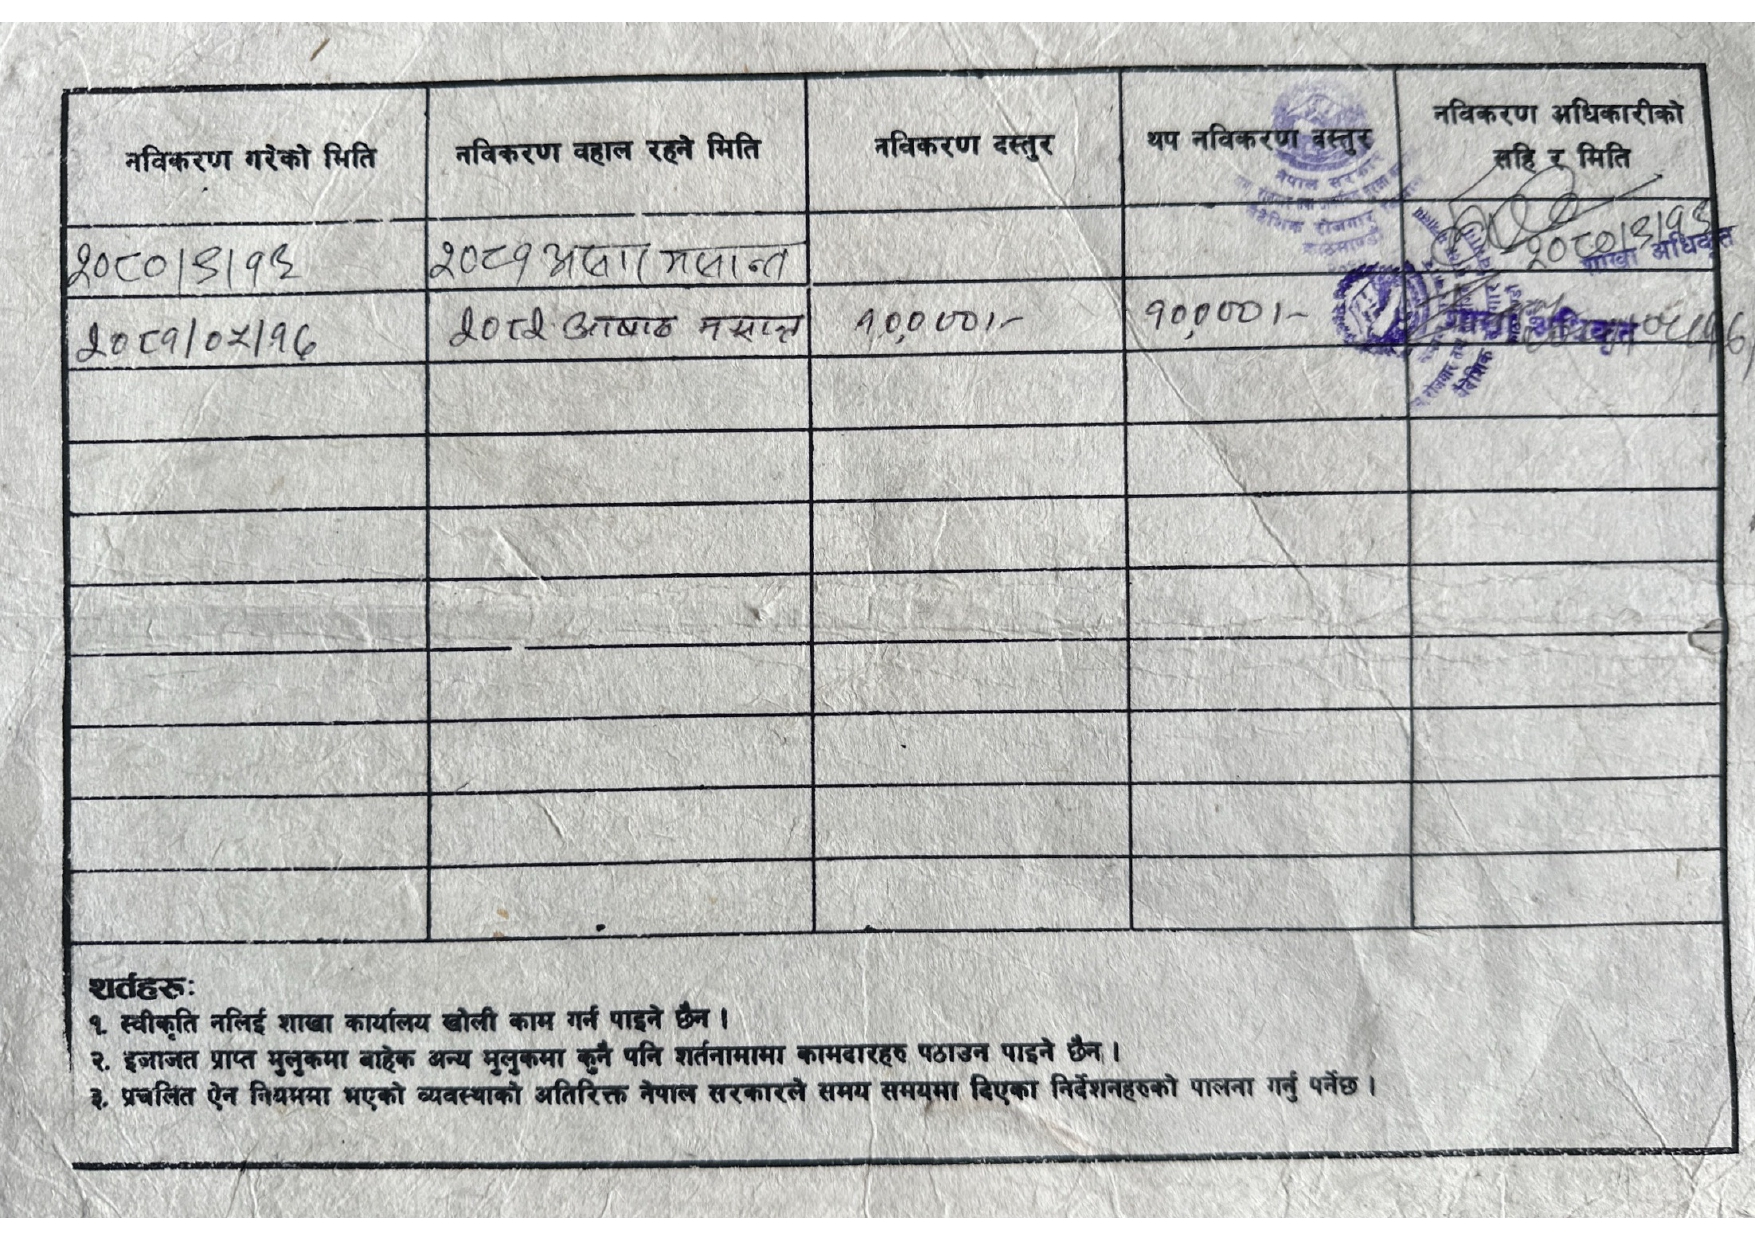 नविकरण गरेको मिति
नविकरण वहाल रहने मिति
नविकरण दस्तुर
थप नविकरण दस्तुर
नविकरण अधिकारीको
सहि र मिति
नेपाल सरकार
वैदेशिक रोजगार
काठमाण्डौ
२०८०।३।१३
२०८१ असार मसान्त
२०८०।३।१३
शाखा अधिकृत
२०८१/०५/१६
२०८२ आषाढ मसान्त
१०,०००।-
१०,०००।-
शाखा अधिकृत
शर्तहरुः
१. स्वीकृति नलिई शाखा कार्यालय खोली काम गर्न पाइने छैन ।
२. इजाजत प्राप्त मुलुकमा बाहेक अन्य मुलुकमा कुनै पनि शर्तनामामा कामदारहरु पठाउन पाइने छैन ।
३. प्रचलित ऐन नियममा भएको व्यवस्थाको अतिरिक्त नेपाल सरकारले समय समयमा दिएका निर्देशनहरुको पालना गर्नु पर्नेछ ।